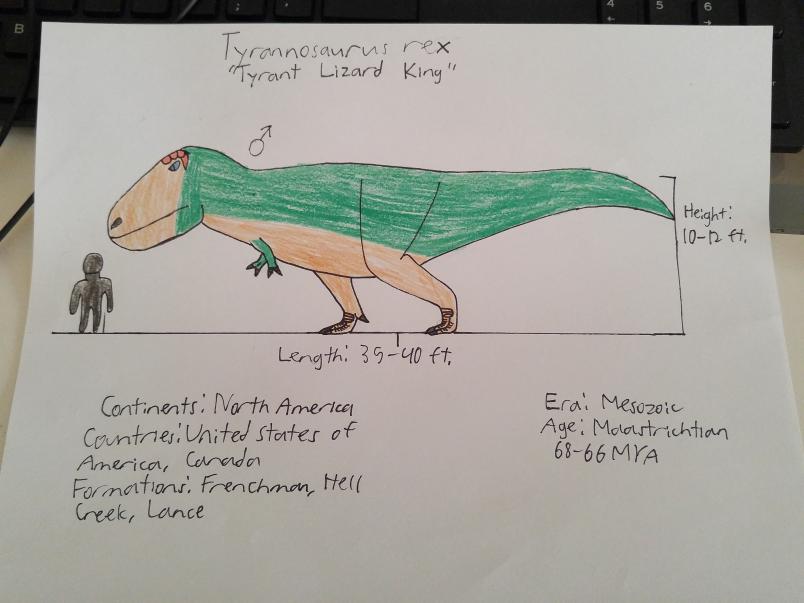 B
4
5
6
Tyrannosaurus rex
"Tyrant Lizard King"
♂
Height:
10-12 ft.
Length: 39-40 ft.
Continents: North America
Countries: United States of
America, Canada
Formations: Frenchman, Hell
Creek, Lance
Era: Mesozoic
Age: Maastrichtian
68-66 MYA